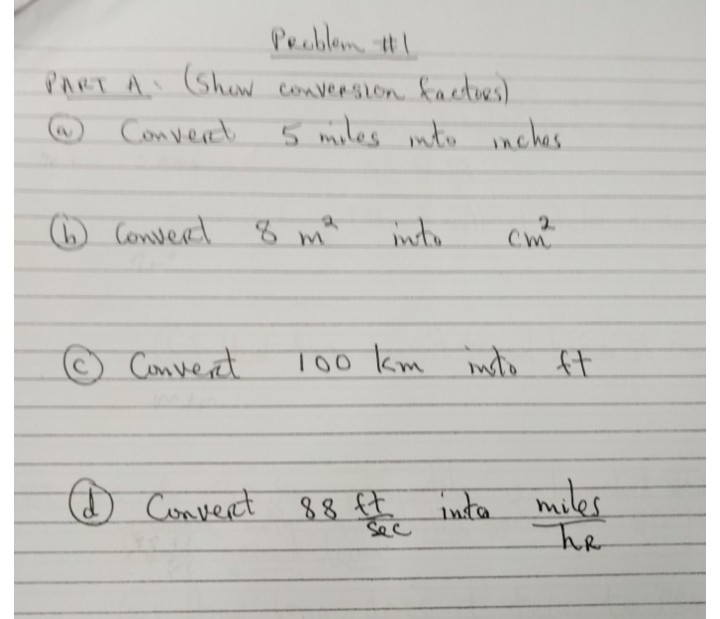 Problem #1
PART A. (Show conversion factors)
(a) Convert 5 miles into inches
(b) Convert 8 m² into cm²
(c) Convert 100 km into ft
(d) Convert 88 ft/sec into miles/hR